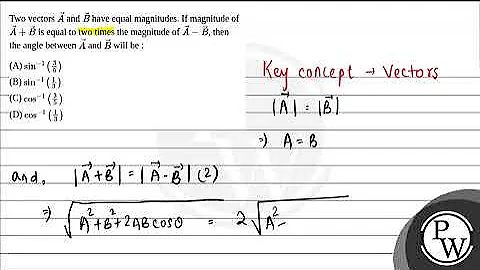 Two vectors A⃗ and B⃗ have equal magnitudes. If magnitude of
A⃗ + B⃗ is equal to two times the magnitude of A⃗ − B⃗, then
the angle between A⃗ and B⃗ will be :
(A) sin⁻¹ (3/5)
(B) sin⁻¹ (1/3)
(C) cos⁻¹ (3/5)
(D) cos⁻¹ (1/3)
Key concept → Vectors
|A⃗| = |B⃗|
⇒ A = B
and, |A⃗+B⃗| = |A⃗-B⃗| (2)
⇒ √A²+B²+2ABcosθ = 2√A²-
PW